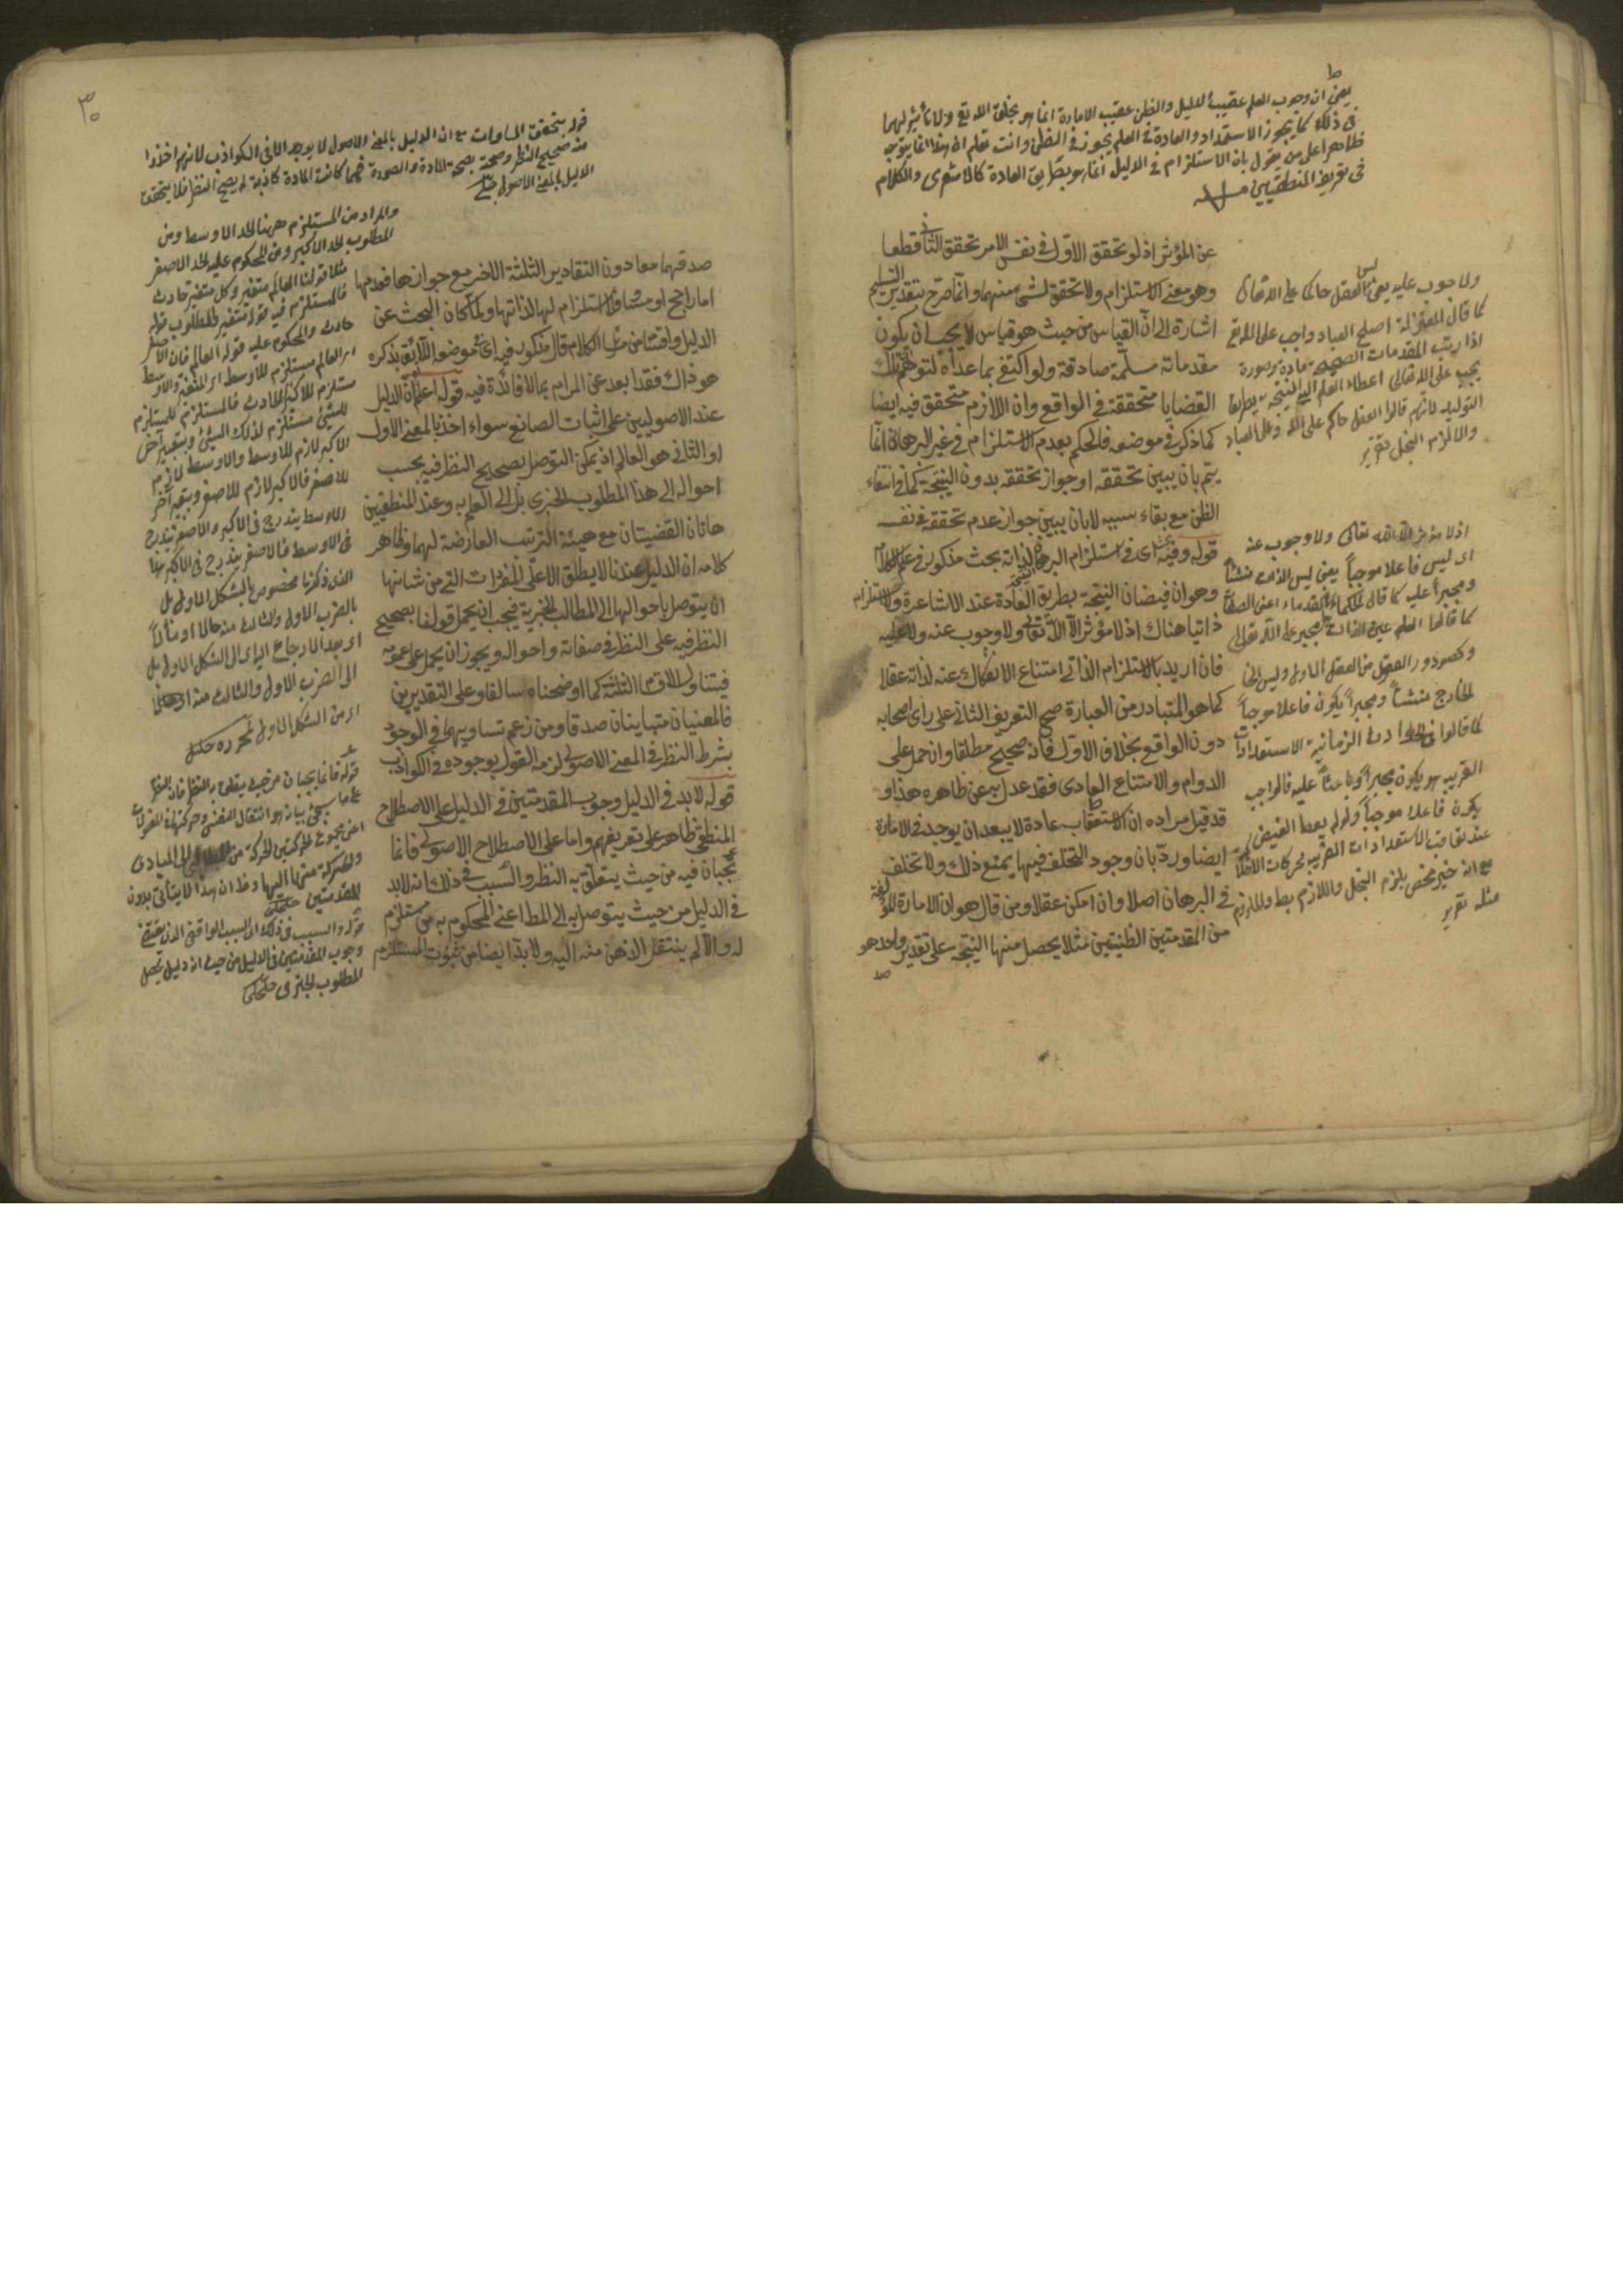 يعنى ان وجوب العلم عقيب الدليل والظن عقيب الامارة انما هو بخلق الله تع ولا تأثير لهما
فى ذلك كما يجوز الاستعداد والعادة فى العلم يجوز فى الظن وانت تعلم ان هذا انما يتوجه
ظاهرا على من يقول بان الاستلزام فى الدليل انما هو بطريق العادة كالاشعرى والكلام
فى تعريف المنطقيين
عن المؤثر اذ لو تحقق الاول فى نفس الامر تحقق الثانى قطعا
وهو معنى الاستلزام ولا تحقق لشئ منهما وانما صرح بتقدير التسليم
اشارة الى ان القياس من حيث هو قياس لا يجب ان يكون
مقدماته مسلمة صادقة ولو اكتفى بما عداه لتوهم ان تلك
القضايا متحققة فى الواقع وان اللازم متحقق فيه ايضا
كما ذكر فى موضعه فالحكم بعدم الاستلزام فى غير البرهان انما
يتم بان يبين تحققه او جواز تحققه بدون النتيجة كما فى انتفاء
الظن مع بقاء سببه لا بان يبين جواز عدم تحققه فى نفسه
قوله وفيه اى فى استلزام البرهان لذاته بحث مذكور فى علم الكلام
وهو ان فيضان النتيجة بطريق العادة عند الاشاعرة ولا استلزام
ذاتيا هناك اذ لا مؤثر الا الله تعالى ولا وجوب عنه ولا عليه
فان اريد بالاستلزام الذاتى امتناع الانفكاك عنه لذاته عقلا
كما هو المتبادر من العبارة صح التعريف الثانى على راى اصحابه
دون الواقع بخلاف الاول فانه صحيح مطلقا وان حمل على
الدوام والامتناع العادى فقد عدل به عن ظاهره هذا و
قد قيل مراده ان الاستعقاب عادة لا يبعد ان يوجد فى الامارة
ايضا ورد بان وجود التخلف فيها يمنع ذلك ولا تخلف
فى البرهان اصلا وان امكن عقلا ومن قال هو ان الامارة المؤلفة
من المقدمتين الظنيتين مثلا يحصل منها النتيجة على تقدير واحد هو
صد
ولا وجوب عليه يعنى ليس العقل حاكما على الله تعالى
كما قال المعتزلة اصلح العباد واجب على الله تع
اذا رتب المقدمات الصحيحة مادة وصورة
يجب على الله تعالى اعطاء العلم النتيجة بطريق
التوليد لانهم قالوا العقل حاكم على الله وعلى العباد
والا لزم البخل تقرير
اذ لا مؤثر الا الله تعالى ولا وجوب عنه
اى ليس فاعلا موجبا يعنى ليس الذات منشأ
ومجبرا عليه كما قال الحكماء القدماء اعنى الصفات
كما قالوا العلم عين الذات مجبر على الله تعالى
وكصدور العقول من العقل الاول وليس
الخارج منشأ ومجبرا يكون فاعلا موجبا
كما قالوا فى الزمانية الاستعدادات
القريب هو يكون مجبرا وباعثا عليه فالواجب
يكون فاعلا موجبا ولو لم يعط الفيض
عند تعاقب الاستعدادات القريبة لحركات الافلاك
مع انه خير محض يلزم البخل واللازم بط والملزوم
مثله تقرير
٣٠
قوله بتحقق المساوات مع ان الدليل بالمعنى الاصول لا يوجد الا فى الكواذب لانهم اخذوا
منه صحيح النظر وصحته بصحة المادة والصورة فمهما كانت المادة كاذبة لم يصح النظر فلا يتحقق
الدليل بالمعنى الاصول
صدقهما معا دون التقادير الثلثة الاخر مع جوازها فعدمها
اما راجح او مساو فلا استلزام لها لذاتها ولما كان البحث عن
الدليل واقتنا من الكلام قال مذكور فيه اى موضعه اللائق بذكره
هو ذاك فقد ابعد عن المرام بما لا فائدة فيه قوله اعلم ان الدليل
عند الاصوليين على اثبات الصانع سواء اخذ بالمعنى الاول
او الثانى هو العالم اذ يمكن التوصل بصحيح النظر فيه بحسب
احواله الى هذا المطلوب الخبرى بل الى العلم به وعند المنطقيين
هاتان القضيتان مع هيئة الترتيب العارضة لهما وظاهر
كلامه ان الدليل عندنا لا يطلق الا على المفردات التى من شانها
ان يتوصل باحوالها الى المطالب الخبرية فيجب ان يحمل قولنا بصحيح
النظر فيه على النظر فى صفاته واحواله ويجوز ان يحمل على عمومه
فيتناول الاقسام الثلثة كما اوضحناه سالفا وعلى التقديرين
فالمعنيان متباينان صدقا ومن زعم تساويهما فى الوجود
بشرط النظر فى المعنى الاصولى لزمه القول بوجوده فى الكواذب
قوله لا بد فى الدليل وجوب المقدمتين فى الدليل على الاصطلاح
المنطقى ظاهر على تعريفهم واما على الاصطلاح الاصولى فانما
تجبان فيه من حيث يتعلق به النظر والسبب فى ذلك انه لا بد
فى الدليل من حيث يتوصل به الى المط اعنى المحكوم به من مستلزم
له والا لم ينتقل الذهن منه اليه ولا بد ايضا من ثبوت المستلزم
والمراد من المستلزم ههنا الحد الاوسط ومن
المطلوب الحد الاكبر ومن المحكوم عليه الحد الاصغر
مثلا قولنا العالم متغير وكل متغير حادث
فالمستلزم فيه قوله متغير والمطلوب قوله
حادث والمحكوم عليه قوله العالم فان الاصغر
اى العالم مستلزم للاوسط اى المتغير والاوسط
مستلزم للاكبر اى الحادث فالمستلزم للمستلزم
للشئ مستلزم لذلك الشئ وبتعبير آخر
الاكبر لازم للاوسط والاوسط لازم
للاصغر فالاكبر لازم للاصغر وبتعبير آخر
الاوسط يندرج فى الاكبر والاصغر يندرج
فى الاوسط فالاصغر يندرج فى الاكبر هذا
الذى ذكرنا مخصوص بالشكل الاول بل
بالضرب الاول والثالث منه حالا او مآلا
اى بعد الارجاع الى الشكل الاول بل
الى الضرب الاول والثالث منه
اى من الشكل الاول
قوله فانما يجبان من حيث يتعلق به النظر فان النظر
على ما سيجئ بيانه هو انتقال النفس وحركتها فى المعقولات
اعنى مجموع الحركتين الحركة من المطالب الى المبادى
والحركة منها اليها وظ ان هذا لا يتأتى بدون
المقدمتين
قوله والسبب فى ذلك اى السبب الواقعى الذى يقتضى
وجوب المقدمتين فى الدليل من حيث انه دليل يحصل
المطلوب الخبرى